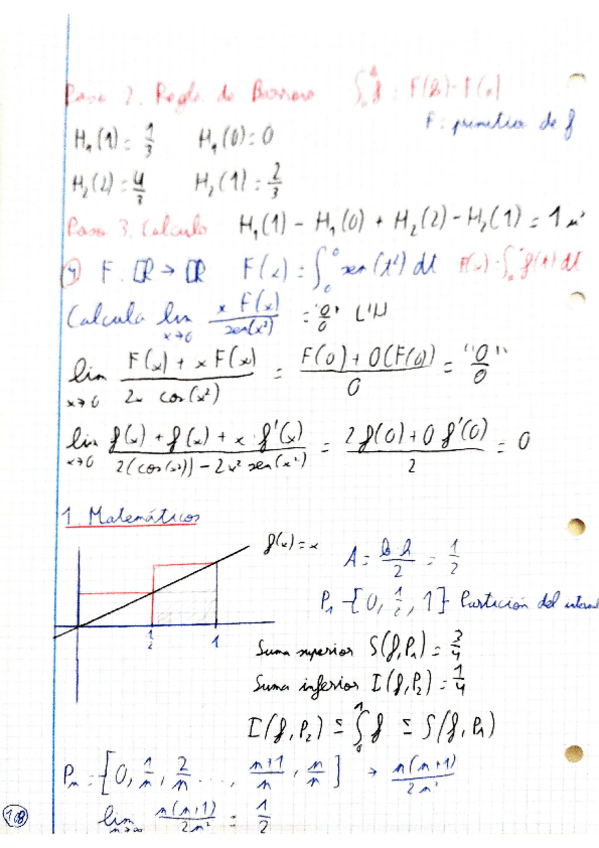 Paso 2. Regla de Barrow ∫₀ᵃ f = F(b) - F(a)
F: primitiva de f
H₁(1) = 1/3 H₁(0) = 0
H₂(2) = 4/3 H₂(1) = 2/3
Paso 3. Calculo H₁(1) - H₁(0) + H₂(2) - H₂(1) = 1 u²
F: ℝ → ℝ F(x) = ∫ sen(t²) dt F(x) = ∫ f(t) dt
Calcula lim x→0 x F(x) / sen(x²) = "0/0" L'H
lim x→0 F(x) + x F(x) / 2x cos(x²) = F(0) + 0(F(0)) / 0 = "0/0"
lim x→0 f(x) + f(x) + x · f'(x) / 2(cos(x²)) - 2x² sen(x²) = 2f(0) + 0 f'(0) / 2 = 0
1. Matemáticas
f(x) = x
A = b h / 2 = 1/2
P₁ = {0, 1/2, 1} Partición del
1/2 1
Suma superior S(f, P₁) = 3/4
Suma inferior I(f, P₂) = 1/4
I(f, P₂) ≤ ∫₀¹ f ≤ S(f, P₁)
Pₙ = {0, 1/n, 2/n ..., n+1/n, n/n} → n(n+1)/2n²
lim n→∞ n(n+1)/2n² = 1/2